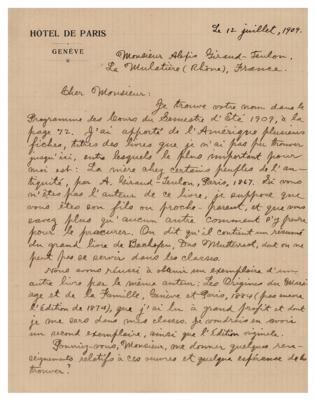 HOTEL DE PARIS
GENÈVE
Le 12 juillet, 1909.
Monsieur Alexis Giraud-Teulon,
La Mulatière (Rhône), France.
Cher Monsieur:
Je trouve votre nom dans le
Programme des Cours du Semestre d'Été 1909, à la
page 72. J'ai apporté de l'Amérique plusieurs
fiches, titres des livres que je n'ai pas pu trouver
jusqu'ici, entre lesquels le plus important pour
moi est: La mère chez certains peuples de l'an-
tiquité, par A. Giraud-Teulon, Paris, 1867. Si vous
n'êtes pas l'auteur de ce livre, je suppose que
vous êtes son fils ou proche parent, et que vous
savez plus qu'aucun autre comment s'y prendre
pour le procurer. On dit qu'il contient un résumé
du grand livre de Bachofen, Das Mutterrecht, dont on ne
peut pas se servir dans les classes.
Nous avons réussi à obtenir un exemplaire d'un
autre livre par le même auteur: Les Origines du Mari-
age et de la Famille, Genève et Paris, 1884 (pas encore
l'Edition de 1874), que j'ai lu à grand profit et dont
je me sers dans mes classes. Je voudrais en avoir
un second exemplaire, ainsi que l'Edition originale.
Pourriez-vous, Monsieur, me donner quelques ren-
seignements relatifs à ces œuvres et quelque espérance de les
trouver?